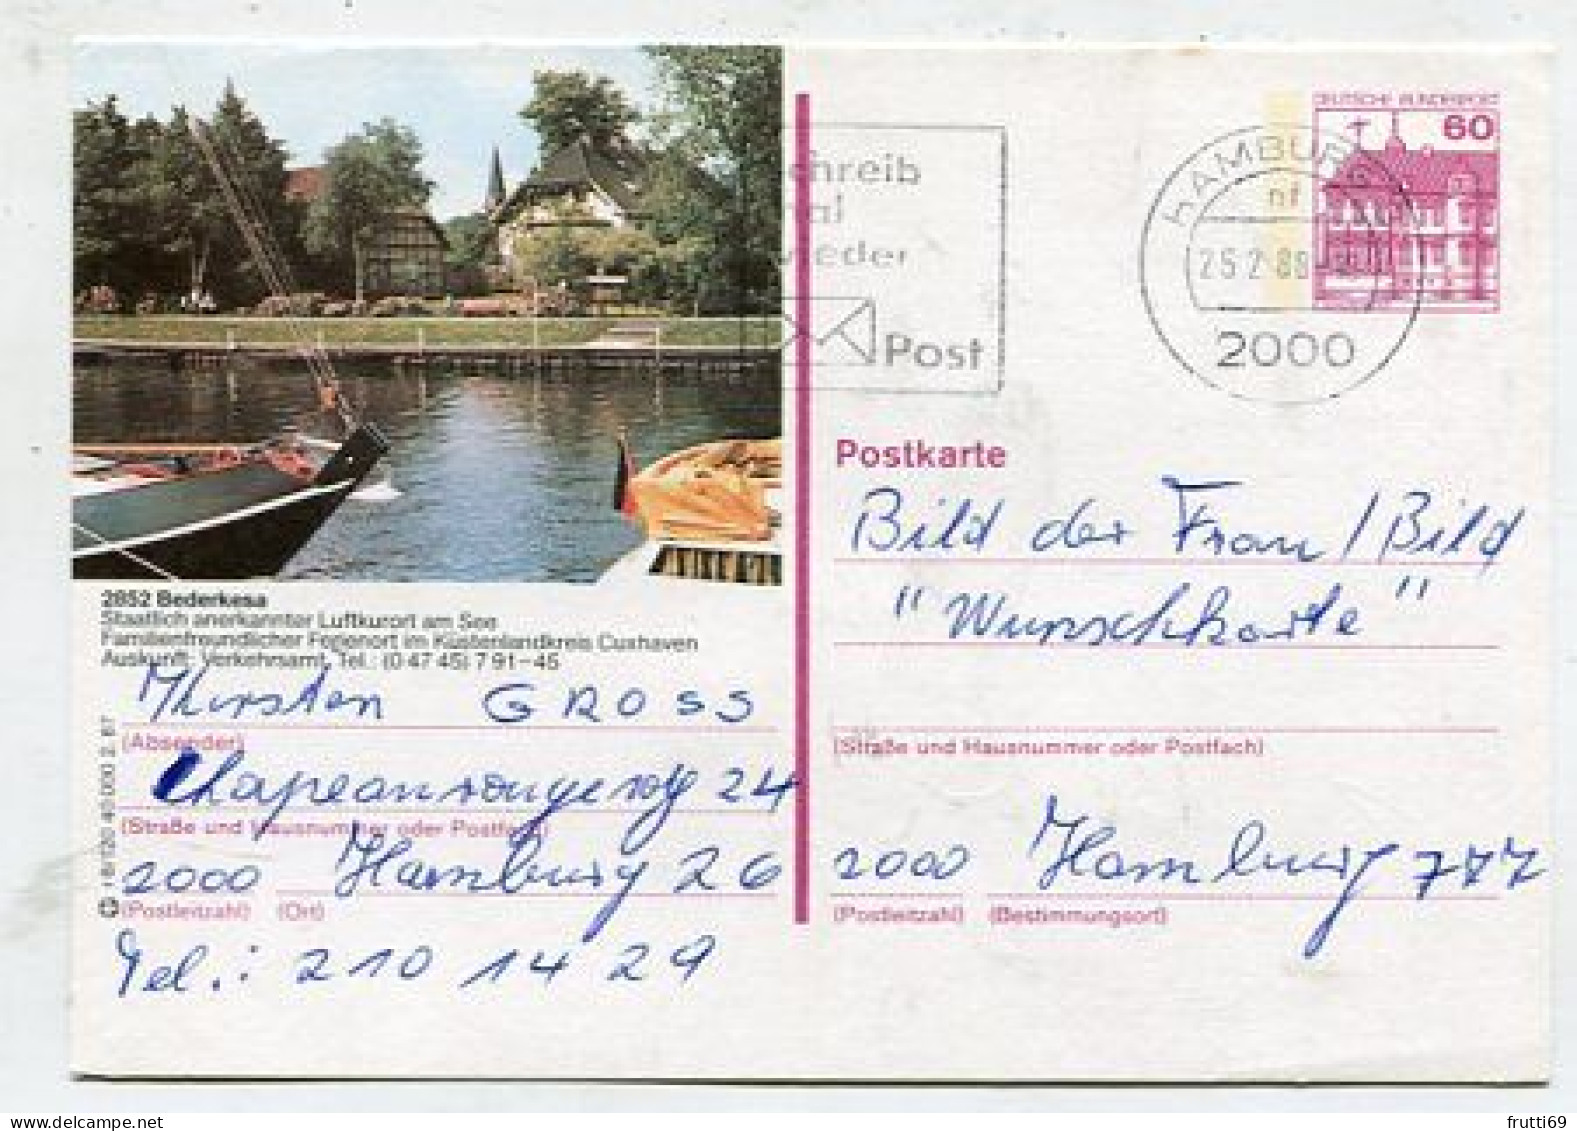 DEUTSCHE BUNDESPOST
60
schreib
mal
wieder
Post
HAMBURG
nf
25.2.88
2000
Postkarte
Bild der Frau / Bild
"Wunschkarte"
(Straße und Hausnummer oder Postfach)
2000 Hamburg 777
(Postleitzahl) (Bestimmungsort)
2852 Bederkesa
Staatlich anerkannter Luftkurort am See
Familienfreundlicher Ferienort im Küstenlandkreis Cuxhaven
Auskunft: Verkehrsamt, Tel.: (0 47 45) 7 91-45
Thorsten GROSS
(Absender)
24
(Straße und Hausnummer oder Postfach)
2000 Hamburg 26
(Postleitzahl) (Ort)
Tel.: 210 14 29
40.000 2. 87
frutti69